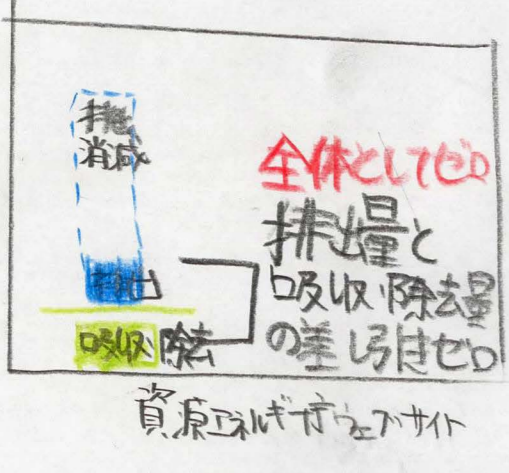 排
消減
排出
吸収・除去
全体としてゼロ
排出量と
吸収・除去量
の差し引きゼロ
資源エネルギー庁ウェブサイト